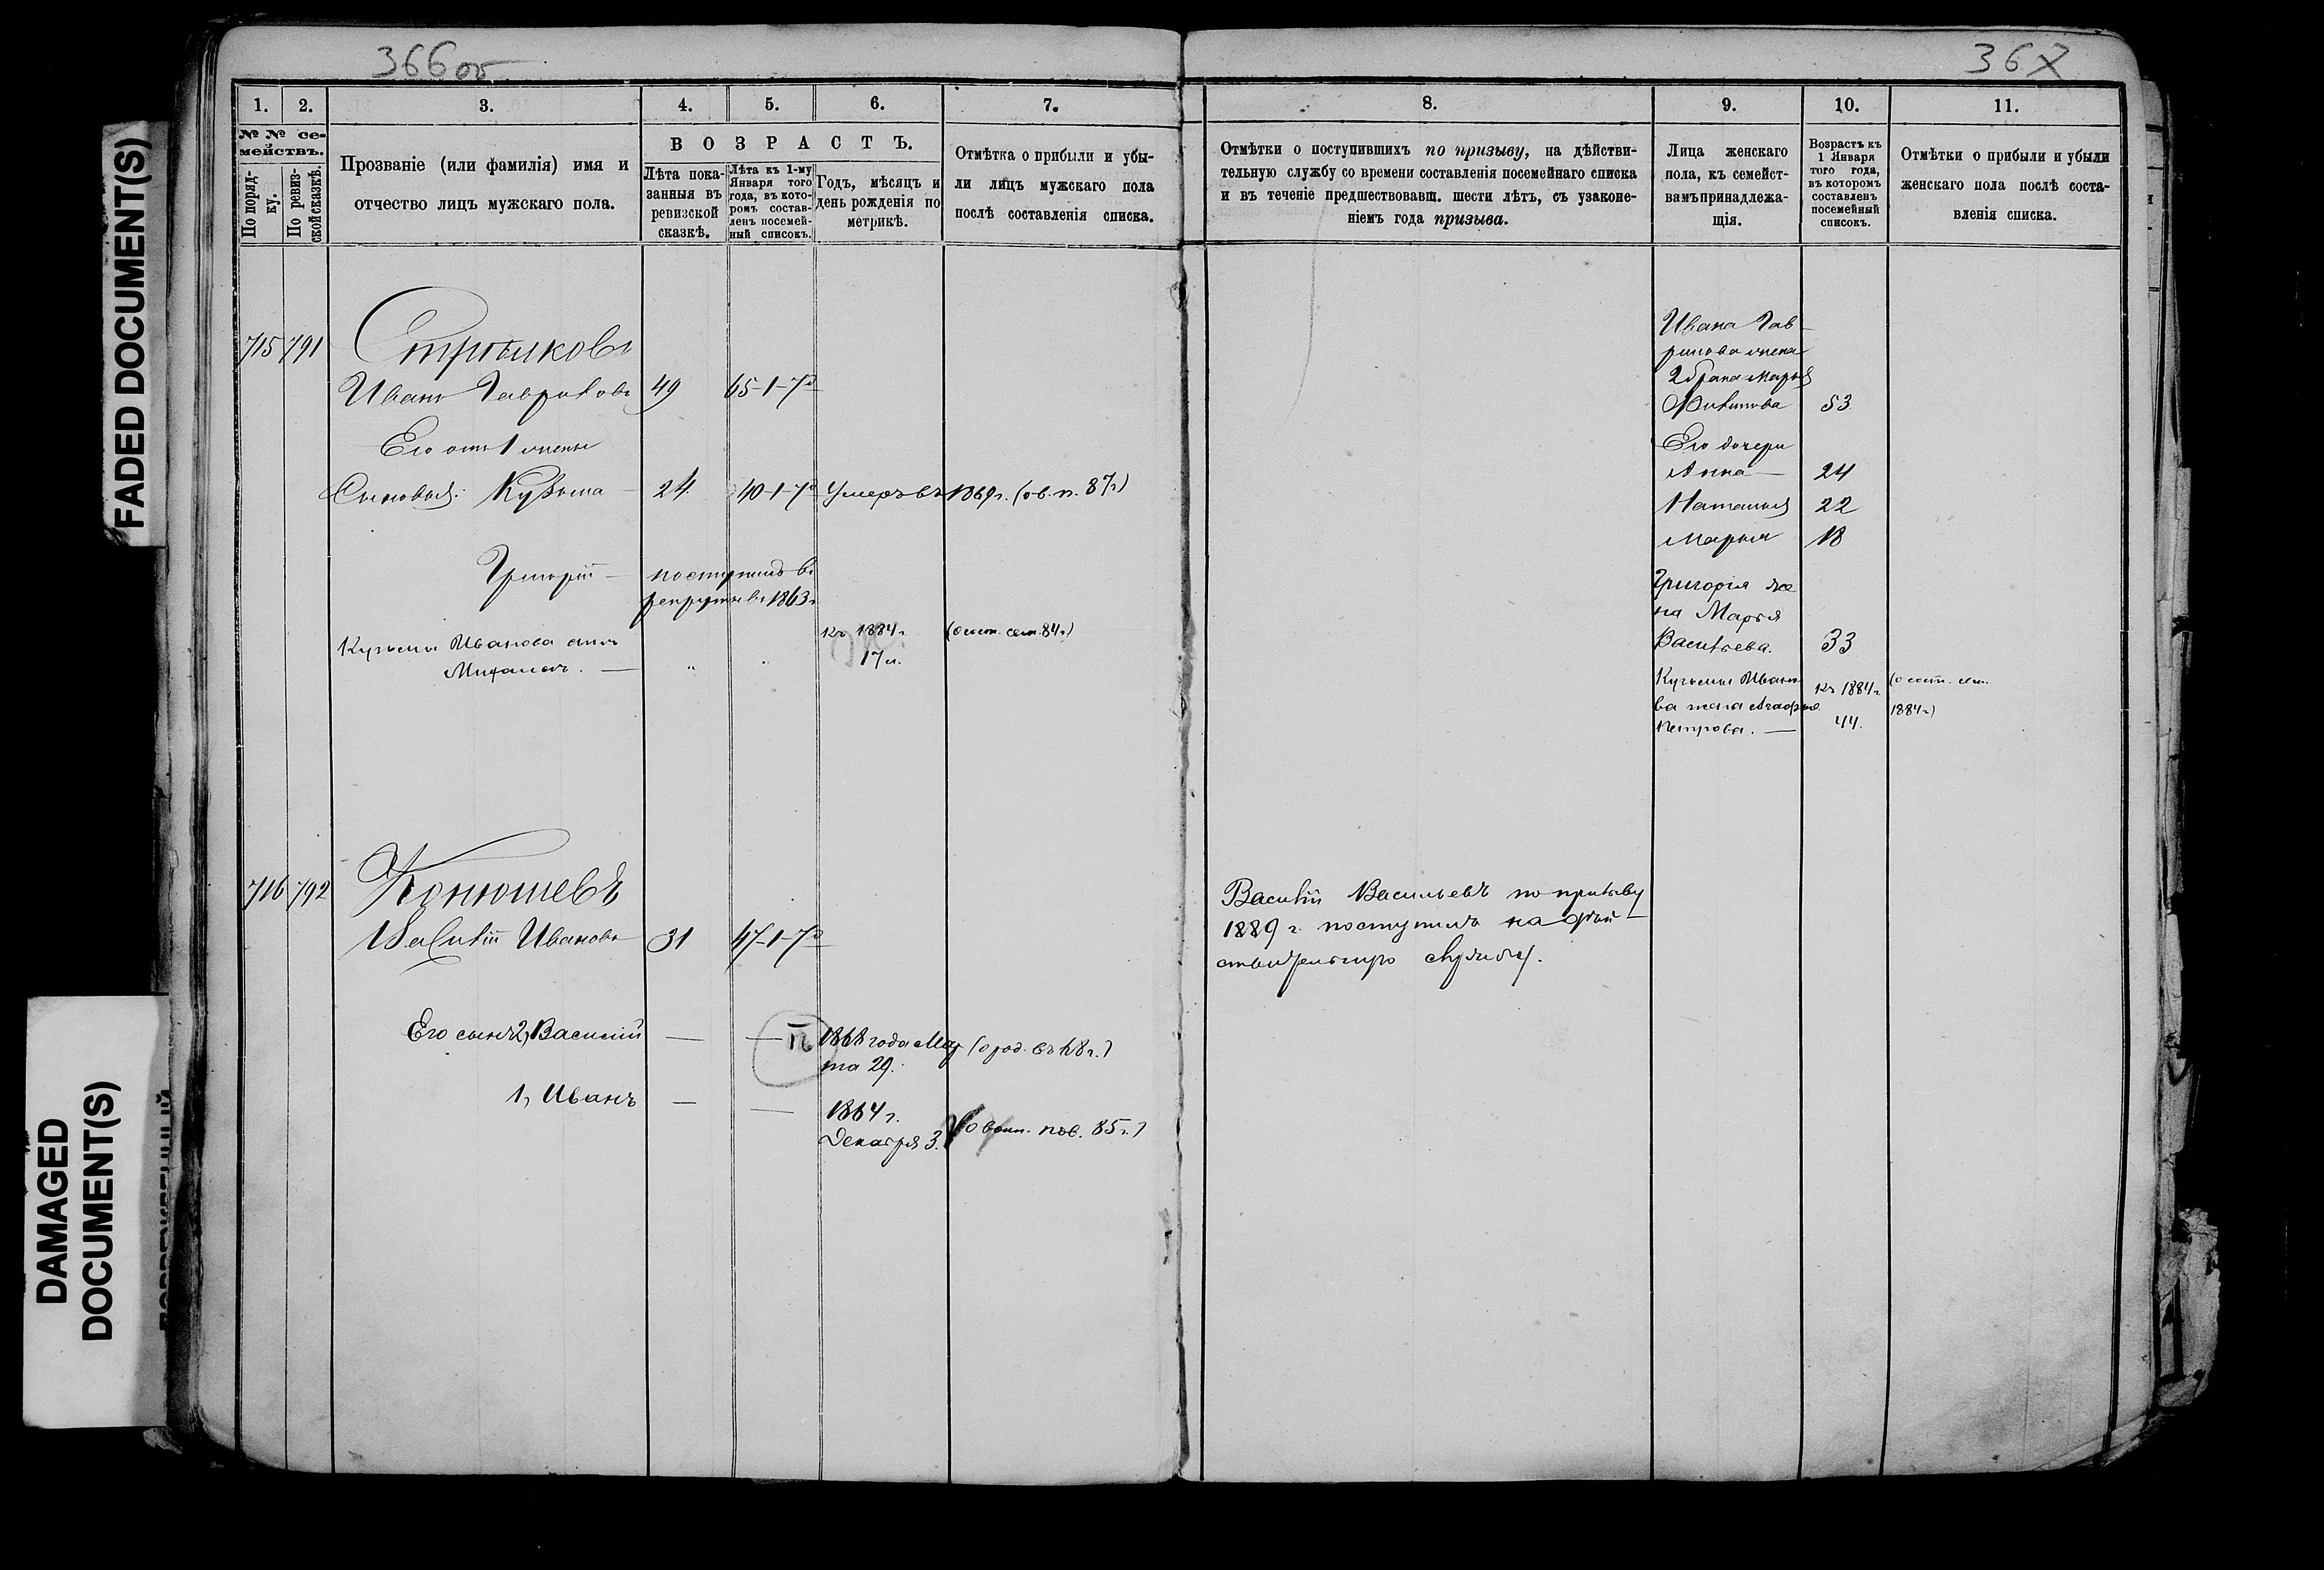 366об
367
FADED DOCUMENT(S)
DAMAGED
DOCUMENT(S)
1.
2.
3.
4.
5.
6.
7.
№ № се-
мействъ.
По поряд-
ку.
По ревиз-
ской сказкѣ.
Прозваніе (или фамилія) имя и
отчество лицъ мужскаго пола.
ВОЗРАСТЪ.
Лѣта пока-
занныя въ
ревизской
сказкѣ.
Лѣта къ 1-му
Января того
года, въ кото-
ромъ состав-
ленъ посемей-
ный списокъ.
Годъ, мѣсяцъ и
день рожденія по
метрикѣ.
Отмѣтка о прибыли и убы-
ли лицъ мужскаго пола
послѣ составленія списка.
715 791
Стрѣлковъ
Иванъ Гавриловъ 49 65-1-70
Его отъ 1 жены
Сыновья: Кузьма 24 40-1-70 Умеръ въ 1869 г. (ов. п. 87 г)
Григорій — поступилъ въ
рекруты въ 1863 г
Кузьмы Иванова сынъ
Михаилъ. — " " Къ 1884 г. 17 л. (о сост. сем. 84 г)
716 792
Конюшевъ
Василій Ивановъ 31 47-1-70
Его сынъ 2, Василій — — 1868 года Мар
та 29. (о род. въ 68 г.)
1, Иванъ — — 1864 г.
Декабря 3. (о воин. пов. 85 г.)
8.
9.
10.
11.
Отмѣтки о поступившихъ по призыву, на дѣйстви-
тельную службу со времени составленія посемейнаго списка
и въ теченіе предшествовавш. шести лѣтъ, съ узаконе-
ніемъ года призыва.
Лица женскаго
пола, къ семейст-
вамъ принадлежа-
щія.
Возрастъ къ
1 Января
того года,
въ которомъ
составленъ
посемейный
списокъ.
Отмѣтки о прибыли и убыли
женскаго пола послѣ соста-
вленія списка.
Ивана Гав-
рилова жена
2 брака Марья
Филипова 53
Его дочери
Анна — 24
Наталья 22
Марья 18
Григорія же
на Марья
Васильева. 33
Кузьмы Ивано
ва жена Агафья
Петрова. — Къ 1884 г. 44. (о сост. сем.
1884 г)
Василій Васильевъ по призыву
1889 г. поступилъ на дѣй-
ствительную службу.